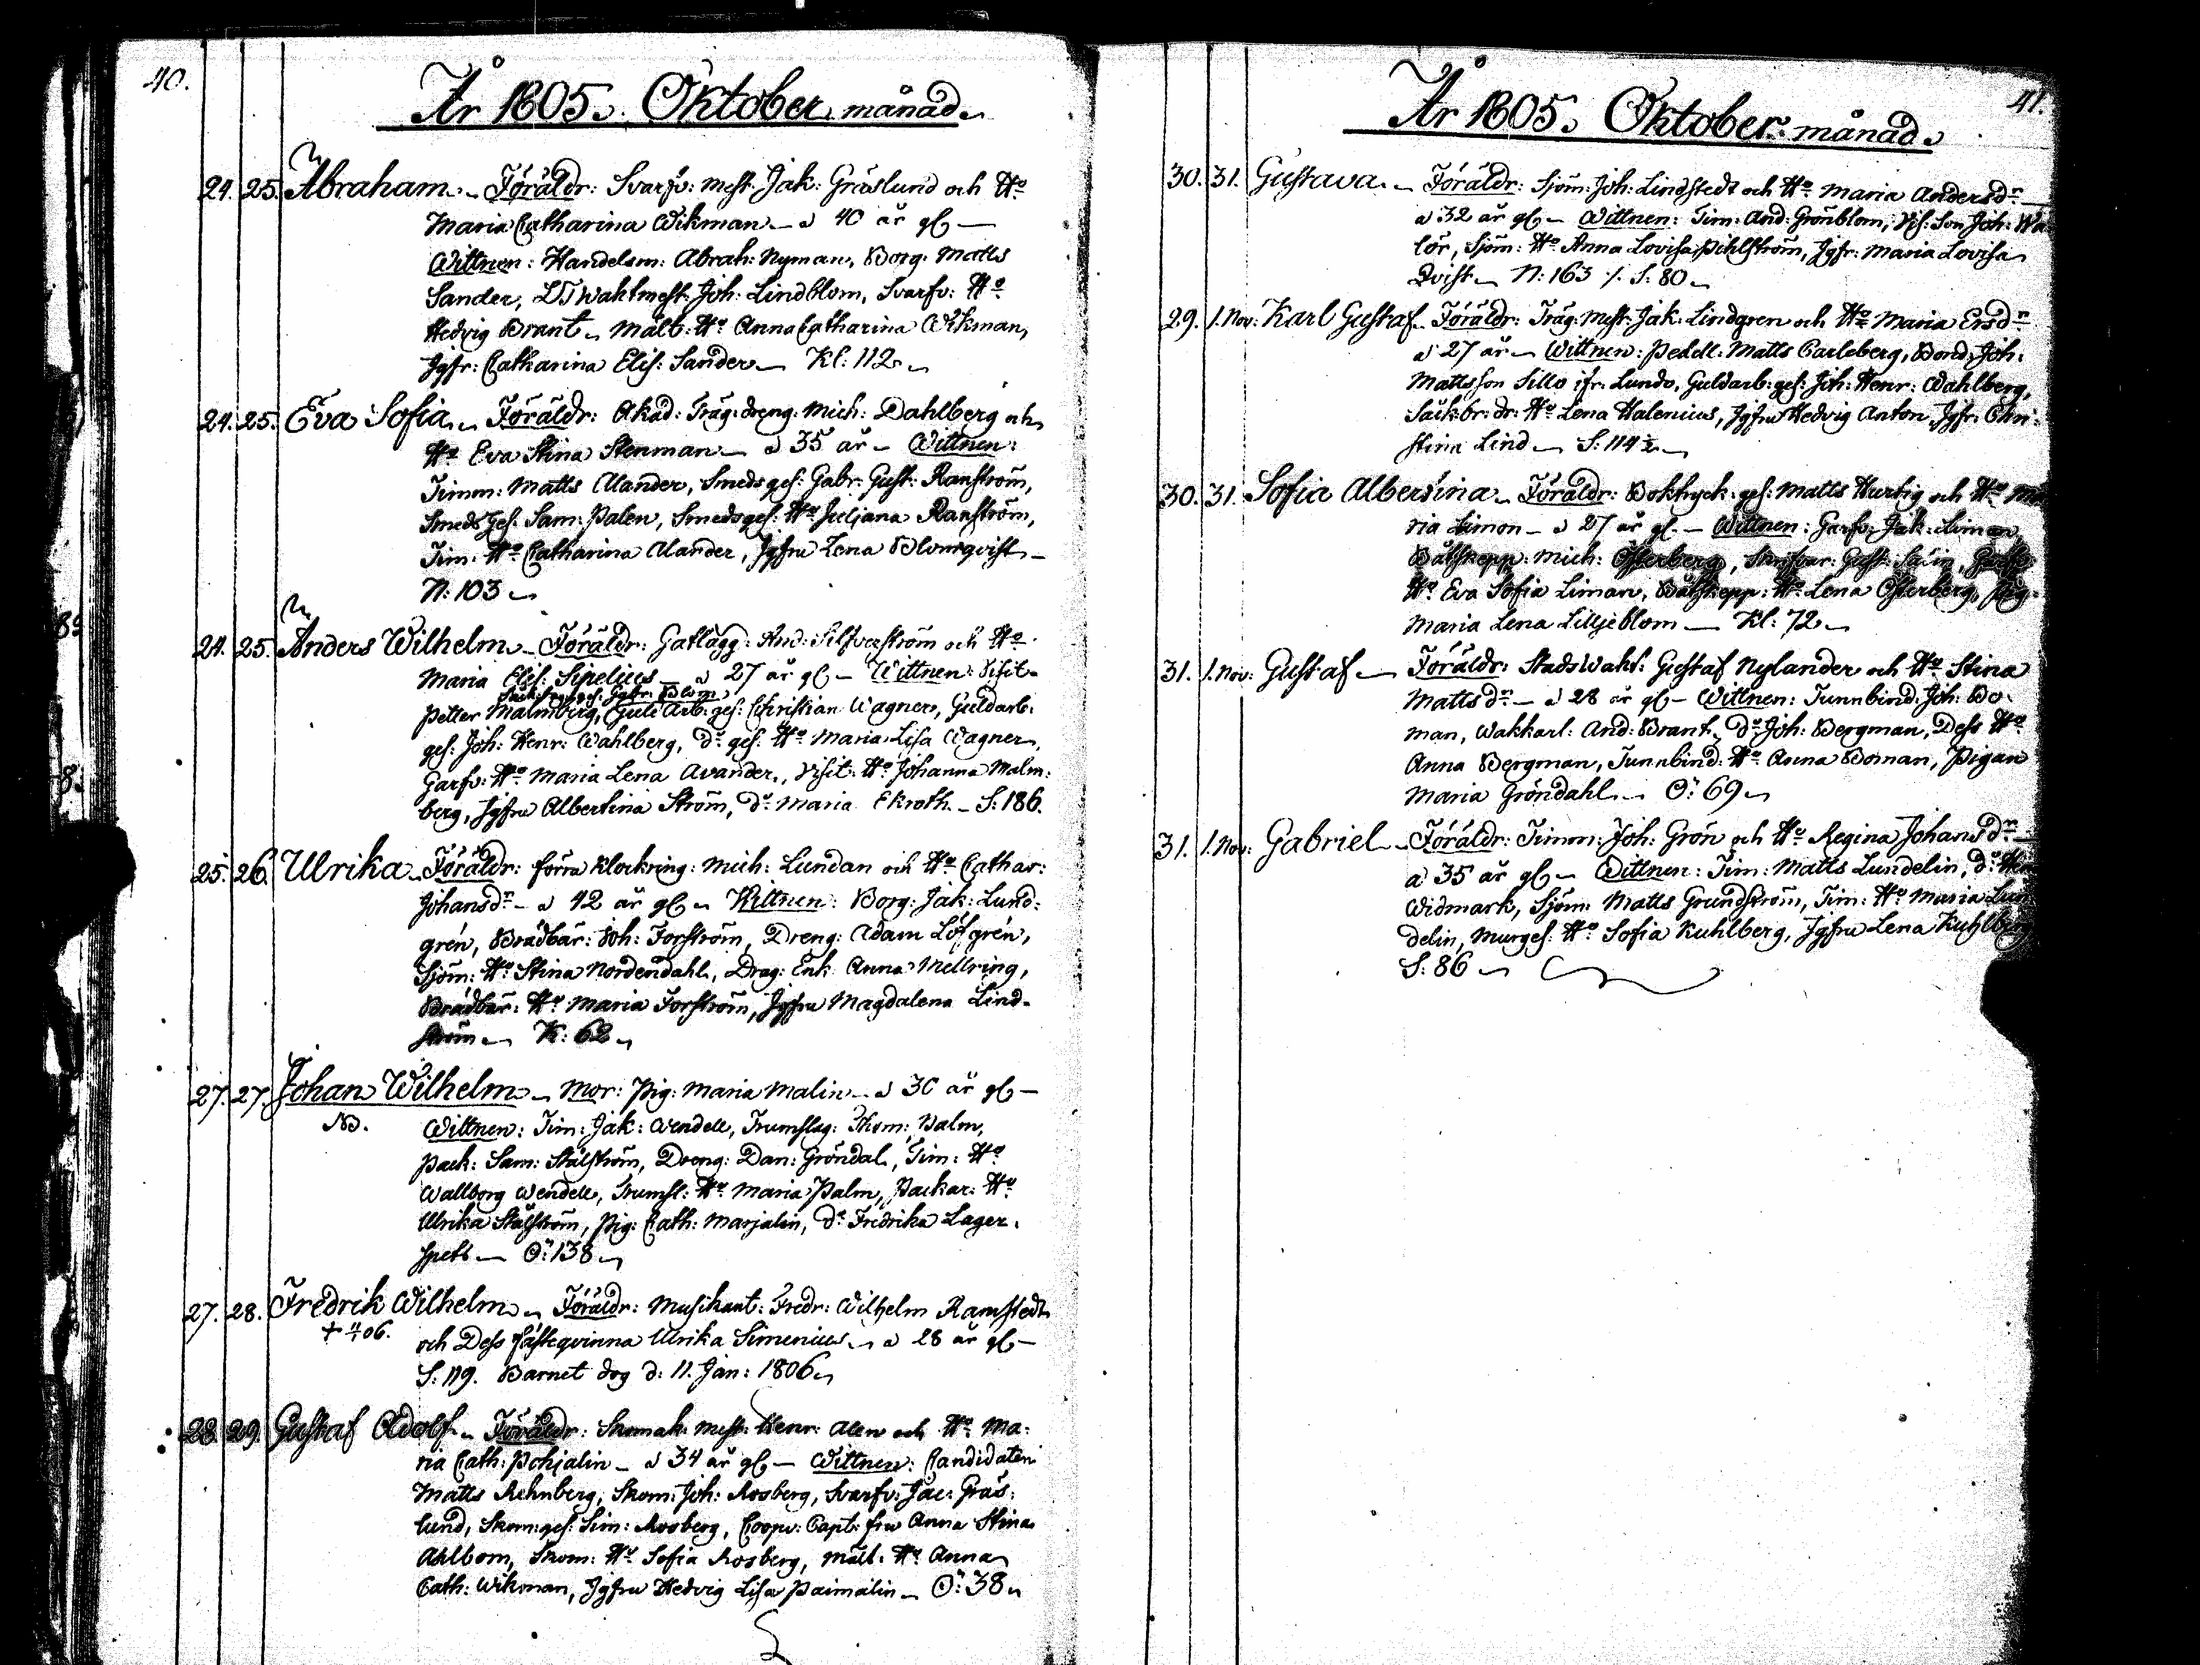 40.
År 1805. Oktober månad.
24. 25. Abraham. Föräldr: Svarfv: mest. Jak: Gräslund och Ho
Maria Catharina Wikman - a 40 år gl -
Wittnen: Handelsm: Abrah: Nyman, Borg: Matts
Sander, LTWaktmest. Joh: Lindblom, Svarfv: Ho
Hedvig Brant, Mält: Ho Anna Catharina Wikman,
Jgfr: Catharina Elis: Sander - Kl: 112.
24. 25. Eva Sofia. Föräldr: Akad: Träg: dreng: Mich: Dahlberg och
Ho Eva Stina Stenman - a 35 år - Wittnen:
Timm: Matts Alander, Smedsges: Gabr: Gust: Ranström,
Smedsges: Sam: Palen, Smedsges: Ho Juljana Ranström,
Tim: Ho Catharina Alander, Jgfru Lena Blomqvist -
N: 103
24. 25. Anders Wilhelm - Föräldr: Gatlägg: And: Silfverström och Ho
Maria Elis: Sipelius - a 27 år gl - Wittnen: Visit-
Gabr: Blom,
Petter Malmberg, Guld Arb: ges: Christian Wagner, Guldarb:
ges: Joh: Henr: Wahlberg, Do ges: Ho Maria Lisa Wagner,
Garfv: Ho Maria Lena Avander, Visit: Ho Johanna Malm:
berg, Jgfru Albertina Ström, Do Maria Ekroth - S: 186.
25. 26. Ulrika - Föräldr: förra Klockring: Mich: Lundan och Ho Cathar:
Johansdr - a 42 år gl - Wittnen: Borg: Jak: Lund:
grén, Brädbär: Joh: Forsström, Dreng: Adam Löfgrén,
Sjöm: Ho Stina Nordendahl, Drag: Enk: Anna Mellring,
Brädbär: Ho Maria Forsström, Jgfru Magdalena Lind-
ström - K: 62
27. 27. Johan Wilhelm - Mor: Pig: Maria Malin - a 30 år gl -
Nb. Wittnen: Tim: Jak: Wendell, Trumslag: Thom: Palm,
Pack: Sam: Stålström, Dreng: Dan: Gröndal, Tim: Ho
Wallborg Wendell, Trumsl: Ho Maria Palm, Packar: Ho
Ulrika Stålström, Pig: Cath: Marjalin, Do Fredrika Lager:
spets - Ö: 138
27. 28. Fredrik Wilhelm - Föräldr: Musikant: Fredr: Wilhelm Ramstedt
+ 11/1 06. och Dess fästeqvinna Ulrika Simenius - a 28 år gl -
S: 119. Barnet dog d: 11. Jan: 1806
28. 29. Gustaf Adolf - Föräldr: Skomak: Mest: Henr: Alen och Ho Ma:
ria Cath: Pohjalin - a 34 år gl - Wittnen: Candidaten
Matts Rehnberg, Skom: Joh: Rosberg, Svarfv: Jac: Gräs:
lund, Skom: ges: Sim: Rosberg, Coopv: Capt: fru Anna Stina
Ahlbom, Skom: Ho Sofia Rosberg, Mält: Ho Anna
Cath: Wikman, Jgfru Hedvig Lisa Paimalin - Ö: 38
41.
År 1805. Oktober månad.
30. 31. Gustava. - Föräldr: Sjöm: Joh: Lindstedt och Ho Maria Andersdr
a 32 år gl - Wittnen: Tim: And: Grönblom, Joh:
lör, Sjöm: Ho Anna Lovisa Pihlström, Jgfr: Maria Lovisa
Qvist - N: 163 ./. S: 80
29. 1. Nov: Karl Gustaf - Föräldr: Träg: Mest: Jak: Lindgren och Ho Maria Ersdr
a 27 år - Wittnen: Pedell: Matts Carleberg, Bond: Joh:
Mattsson Sillo ifr: Lundo, Guldarb: ges: Joh: Henr: Wahlberg,
Säckbr: dr: Ho Lena Walenius, Jgfru Hedvig Anton, Jgfr: Chri:
stina Lind - S: 114 1/2
30. 31. Sofia Albertina - Föräldr: Boktryck: ges: Matts Hurtig och Ho Ma
ria Limon - a 27 år gl - Wittnen: Garfv: Jak: Liman,
Båtskepp: Mich: Österberg, Gust:
Ho Eva Sofia Liman, Båtskepp: Ho Lena Österberg, Pig:
Maria Lena Liljeblom - Kl: 72
31. 1. Nov: Gustaf - Föräldr: StadsWakt: Gustaf Nylander och Ho Stina
Mattsdr - a 28 år gl - Wittnen: Tunnbind: Joh: Bo:
man, Wakkarl: And: Brant, Do Joh: Bergman, Dess Ho
Anna Bergman, Tunnbind: Ho Anna Boman, Pigan
Maria Gröndahl - Ö: 69
31. 1. Nov: Gabriel - Föräldr: Timm: Joh: Grön och Ho Regina Johansdr -
a 35 år gl - Wittnen: Tim: Matts Lundelin, Do
Widmark, Sjöm: Matts Grundström, Tim: Ho Maria Lun
delin, Murges: Ho Sofia Kuhlberg, Jgfru Lena Kuhlberg
S: 86